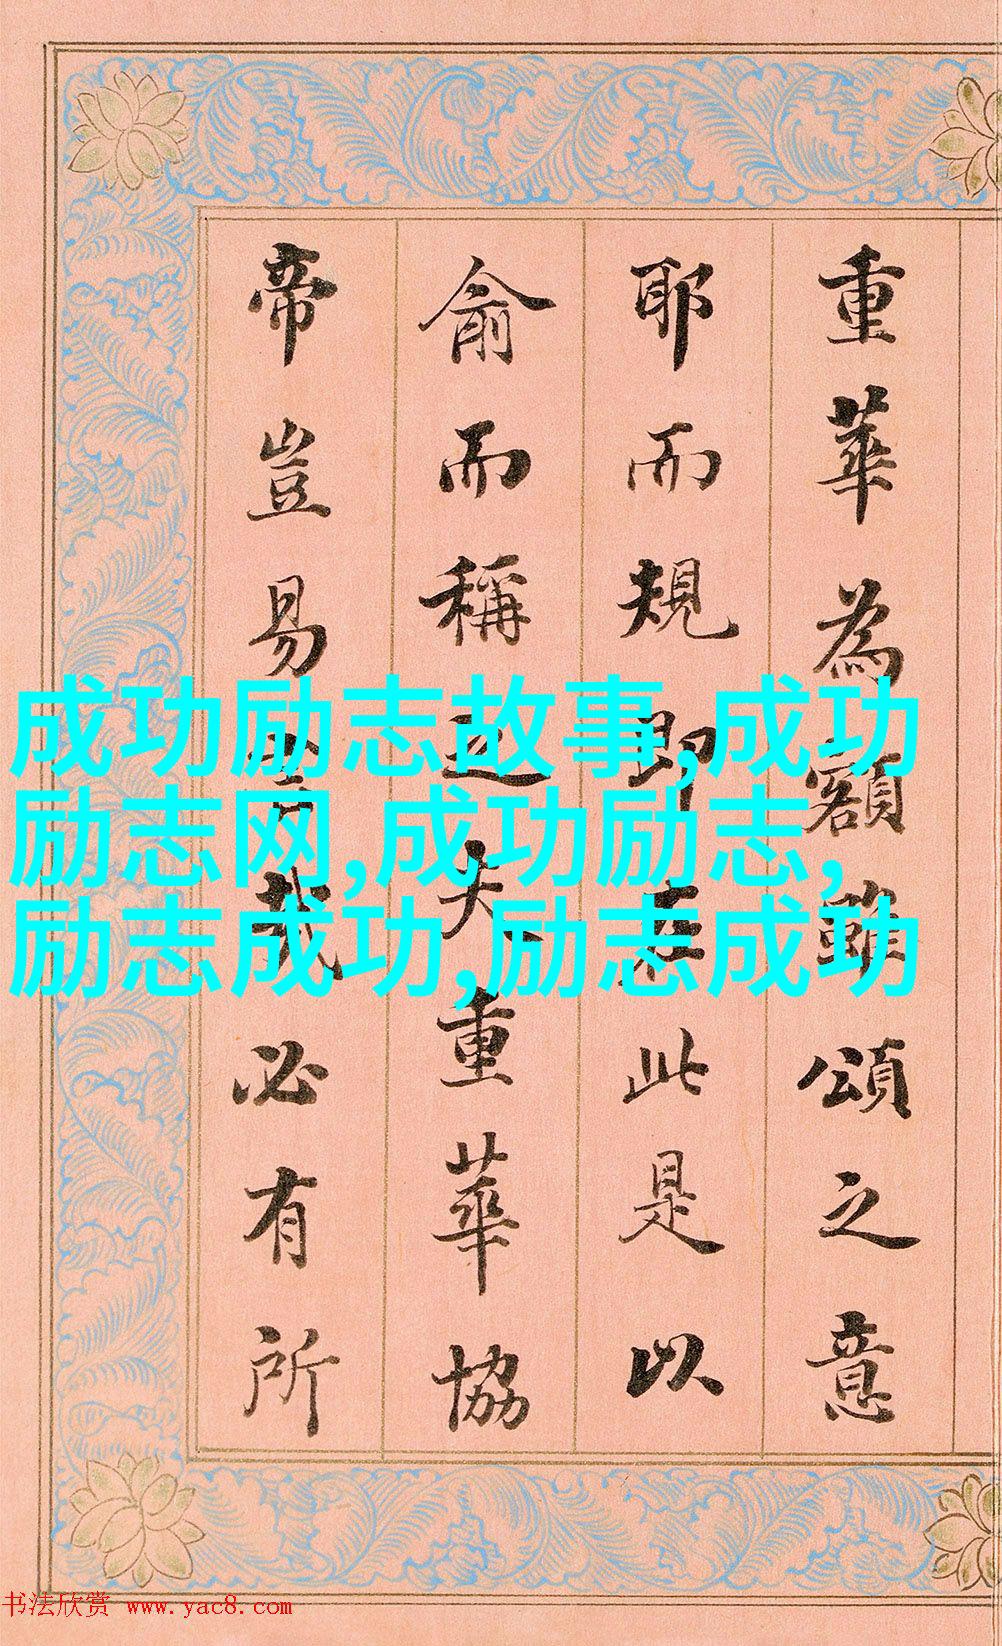 重華為額雖頌之意
耶而規即在此是以
俞而稱夫重華協
帝豈易哉必有所
成功励志故事,成功
励志网,成功励志,
励志成功,励志成功
书法欣赏 www.yac8.com